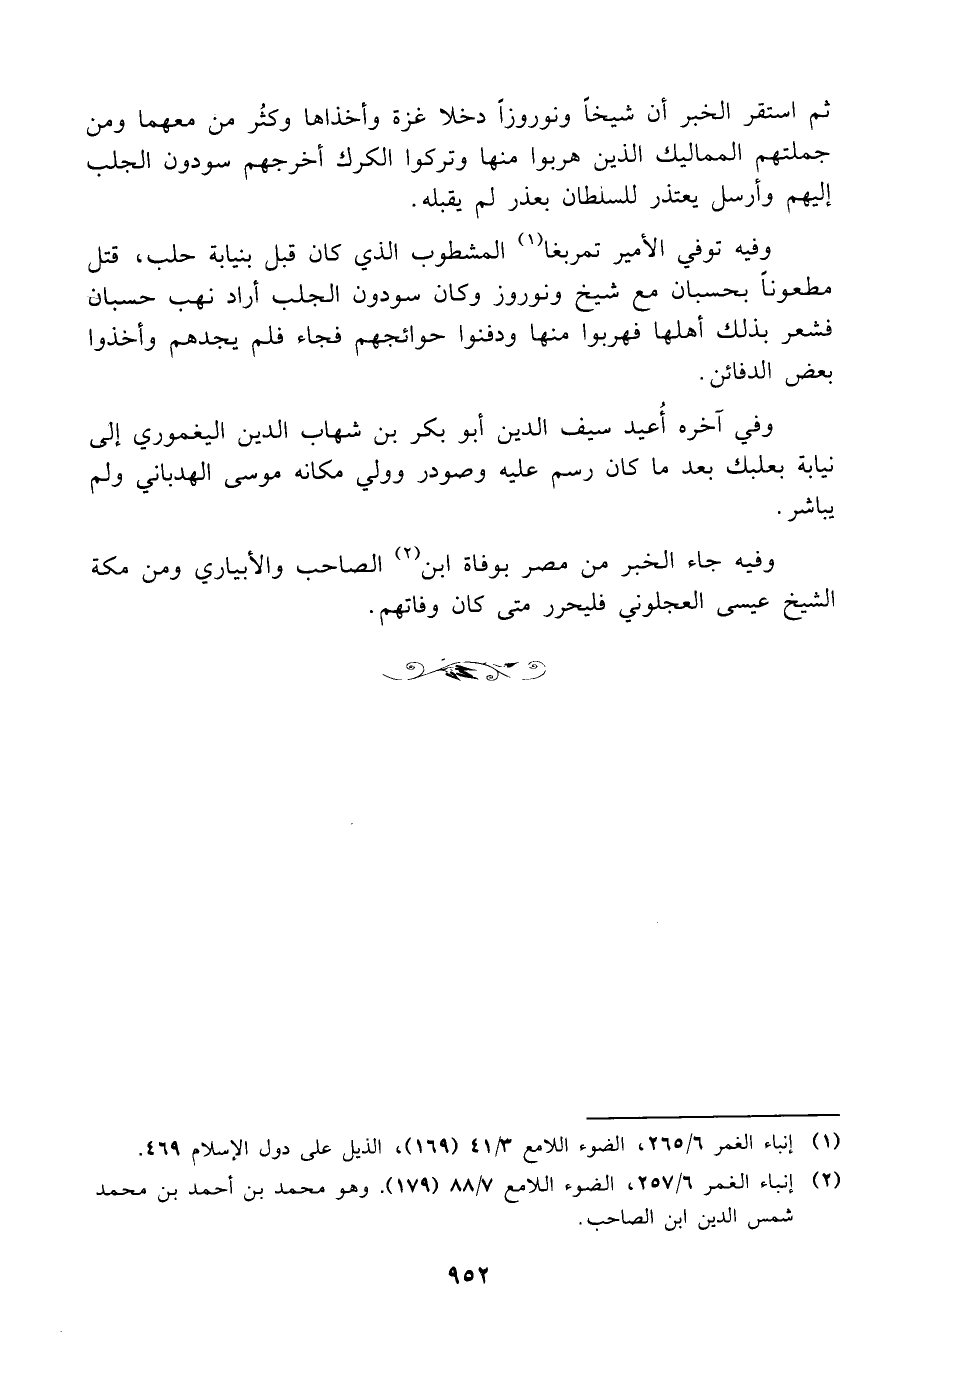 ثم استقر الخبر أن شيخاً ونوروزاً دخلا غزة وأخذاها وكثُر من معهما ومن
جملتهم المماليك الذين هربوا منها وتركوا الكرك أخرجهم سودون الجلب
إليهم وأرسل يعتذر للسلطان بعذر لم يقبله.
وفيه توفي الأمير تمربغا(١) المشطوب الذي كان قبل بنيابة حلب، قتل
مطعوناً بحسبان مع شيخ ونوروز وكان سودون الجلب أراد نهب حسبان
فشعر بذلك أهلها فهربوا منها ودفنوا حوائجهم فجاء فلم يجدهم وأخذوا
بعض الدفائن.
وفي آخره أُعيد سيف الدين أبو بكر بن شهاب الدين اليغموري إلى
نيابة بعلبك بعد ما كان رسم عليه وصودر وولي مكانه موسى الهدباني ولم
يباشر.
وفيه جاء الخبر من مصر بوفاة ابن(٢) الصاحب والأبياري ومن مكة
الشيخ عيسى العجلوني فليحرر متى كان وفاتهم.
(١) إنباء الغمر ٢٦٥/٦، الضوء اللامع ٤١/٣ (١٦٩)، الذيل على دول الإسلام ٤٦٩.
(٢) إنباء الغمر ٢٥٧/٦، الضوء اللامع ٨٨/٧ (١٧٩). وهو محمد بن أحمد بن محمد
شمس الدين ابن الصاحب.
٩٥٢